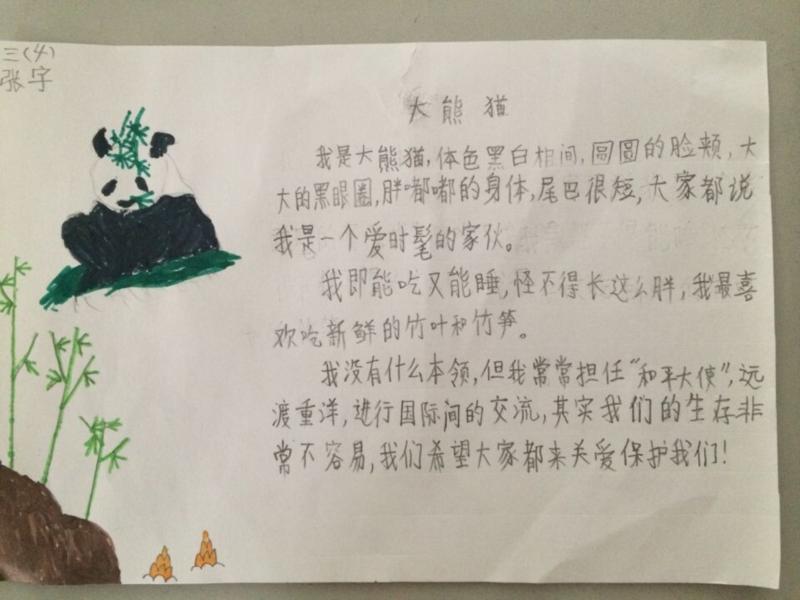 三(4)
张宇
大熊猫
我是大熊猫,体色黑白相间,圆圆的脸颊,大
大的黑眼圈,胖嘟嘟的身体,尾巴很短,大家都说
我是一个爱时髦的家伙。
我即能吃又能睡,怪不得长这么胖,我最喜
欢吃新鲜的竹叶和竹笋。
我没有什么本领,但我常常担任“和平大使”,远
渡重洋,进行国际间的交流,其实我们的生存非
常不容易,我们希望大家都来关爱保护我们!